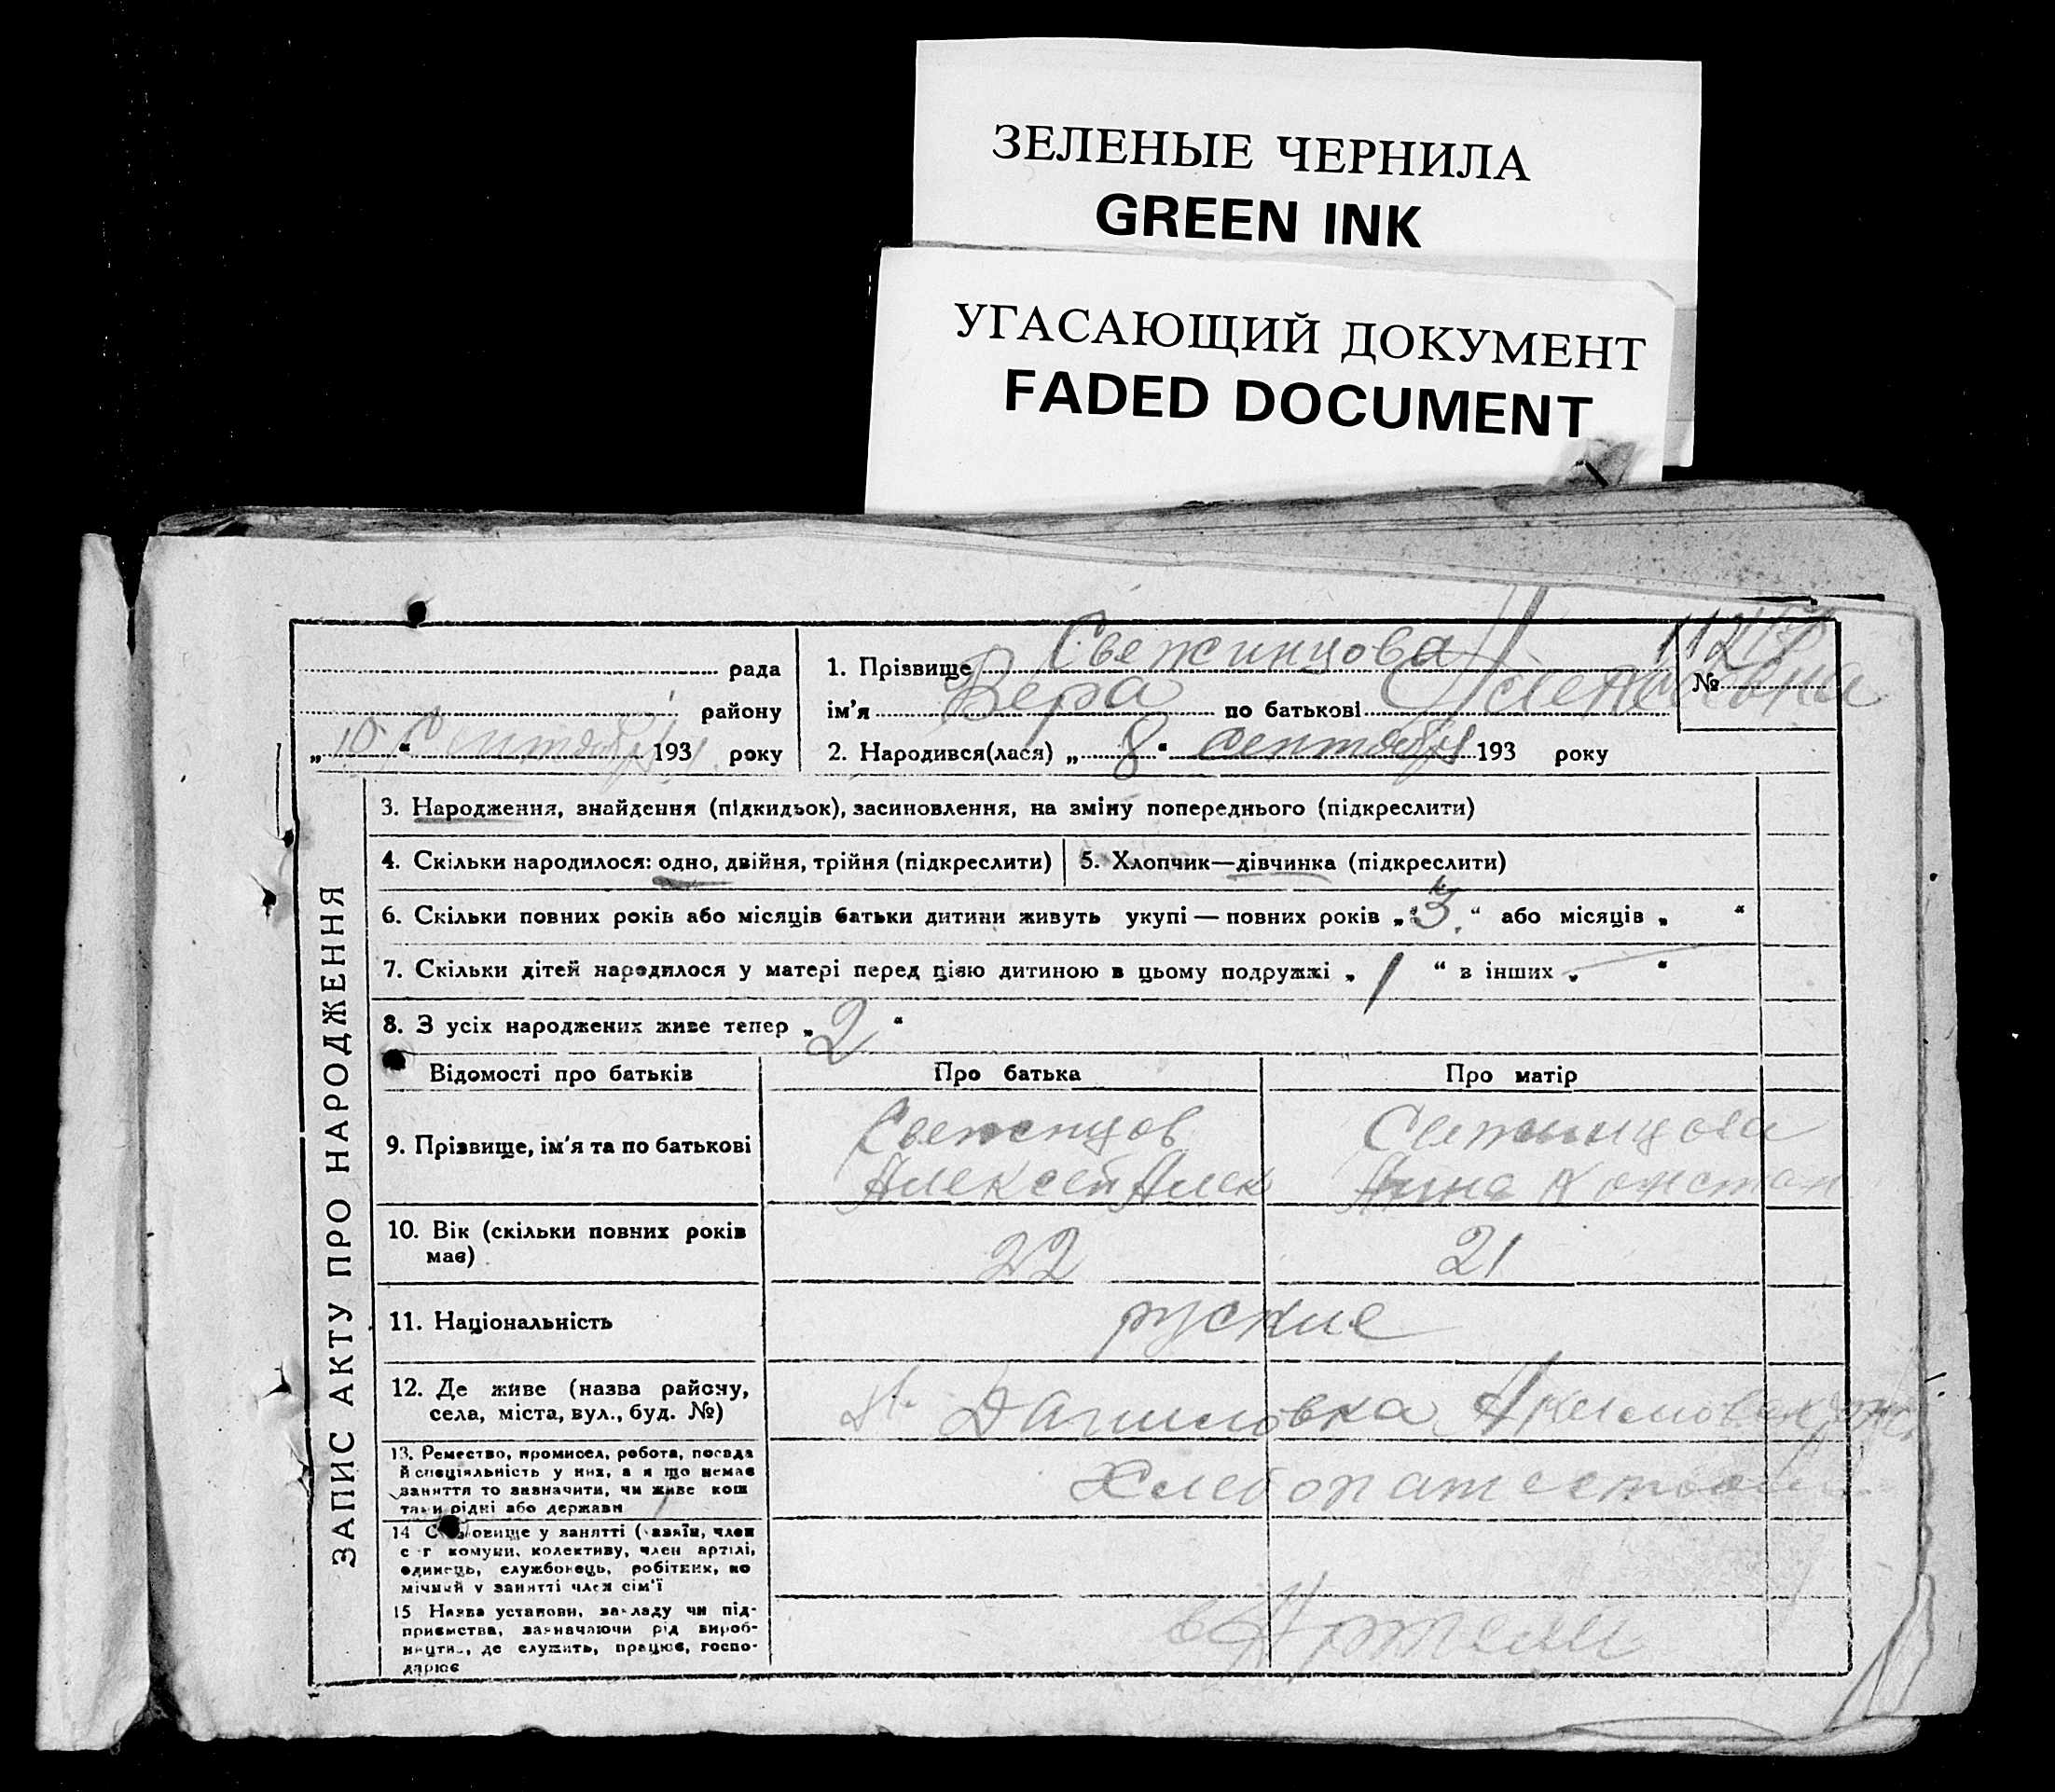 ЗЕЛЕНЫЕ ЧЕРНИЛА
GREEN INK
УГАСАЮЩИЙ ДОКУМЕНТ
FADED DOCUMENT
рада
району
„10“ Сентября 193 року
1. Прізвище Свежинцова
ім'я Вера по батькові
№ 112
2. Народився(лася) „8“ сентября 193 року
ЗАПИС АКТУ ПРО НАРОДЖЕННЯ
3. Народження, знайдення (підкидьок), засиновлення, на зміну попереднього (підкреслити)
4. Скільки народилося: одно, двійня, трійня (підкреслити)
5. Хлопчик—дівчинка (підкреслити)
6. Скільки повних років або місяців батьки дитини живуть укупі — повних років „3“ або місяців „ “
7. Скільки дітей народилося у матері перед цією дитиною в цьому подружжі „1“ в інших „ “
8. З усіх народжених живе тепер „2“
Відомості про батьків Про батька Про матір
9. Прізвище, ім'я та по батькові
Алексей Алек Анна Констан
10. Вік (скільки повних років має) 22 21
11. Національність руские
12. Де живе (назва району,
села, міста, вул., буд. №)
Даниловка
13. Ремество, промисел, робота, посада
й спеціяльність у них, а я що немає
заняття то зазначити, чи живе кош
тами рідні або держави
14 овище у занятті ( член
с г комуни, колективу, член артілі,
одинець, службовець, робітник, по
мічний у занятті член сім'ї
15 Назва установи, закладу чи під-
приємства, зазначаючи рід вироб-
де служить, працює, госпо-
дарює
в Артели